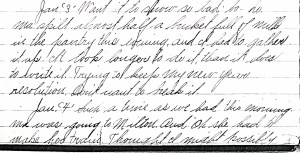 Jan 3. Want it to snow so bad to-no.
ma spilt almost half a bucket full of milk
in the pantry this evening, and I had to gather
it up. It took longer to do it than it does
to write it. Trying to keep my new years
resolution. Don't want to break it.
Jan. 4 Such a time as we had this morning
ma was going to Milton. And Oh she had to
make her train. Thought I might possibly